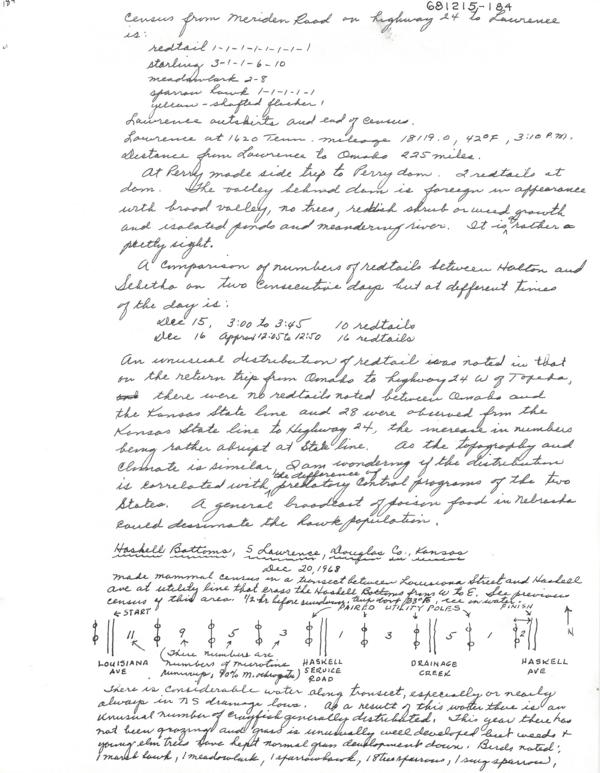 681215-184
Census from Meriden Road on highway 24 to Lawrence
is:
redtail 1-1-1-1-1-1-1-1
starling 3-1-1-6-10
meadowlark 2-8
sparrow hawk 1-1-1-1-1
yellow-shafted flicker 1
Lawrence outskirts and end of census.
Lawrence at 1620 Tenn. mileage 18119.0, 42°F, 3:10 P.M.
Distance from Lawrence to Omaha 225 miles.
At Perry made side trip to Perry dam. 2 redtails at
dam. The valley behind dam is foreign in appearance
with broad valley, no trees, reddish shrub or weed growth
and isolated ponds and meandering river. It is rather a
pretty sight.
A comparison of numbers of redtails between Holton and
Sebetha on two consecutive days but at different times
of the day is:
Dec 15, 3:00 to 3:45 10 redtails
Dec 16 approx 12:05 to 12:50 16 redtails
An unusual distribution of redtail was noted in that
on the return trip from Omaha to highway 24 W of Topeka,
there were no redtails noted between Omaha and
the Kansas State line and 28 were observed from the
Kansas State line to Highway 24, the increase in numbers
being rather abrupt at State line. As the topography and
climate is similar, I am wondering if the distribution
is correlated with the difference of predatory control programs of the two
States. A general broadcast of poison food in Nebraska
could dessimate the hawk population.
Haskell Bottoms, S Lawrence, Douglas Co., Kansas
Dec 20, 1968
Made mammal census in a transect between Louisiana Street and Haskell
ave at utility line that cross the Haskell Bottoms from W to E. See previous
census of this area. 1/2 hr before sundown, temp 33°F, ice on water.
← START PAIRED UTILITY POLES FINISH
11 9 5 3 1 3 5 1 2 N
LOUISIANA AVE (These numbers are numbers of microtine runways, 90% M. ochrogaster) HASKELL SERVICE ROAD DRAINAGE CREEK HASKELL AVE
There is considerable water along transect, especially or nearly
always in NS drainage lows. As a result of this water there is an
unusual number of crayfish generally distributed. This year there has
not been grazing and grass is unusually well developed but weeds +
young elm trees have kept normal grass development down. Birds noted:
1 marsh hawk, 1 meadowlark, 1 sparrow hawk, 18 tree sparrows, 1 song sparrow,